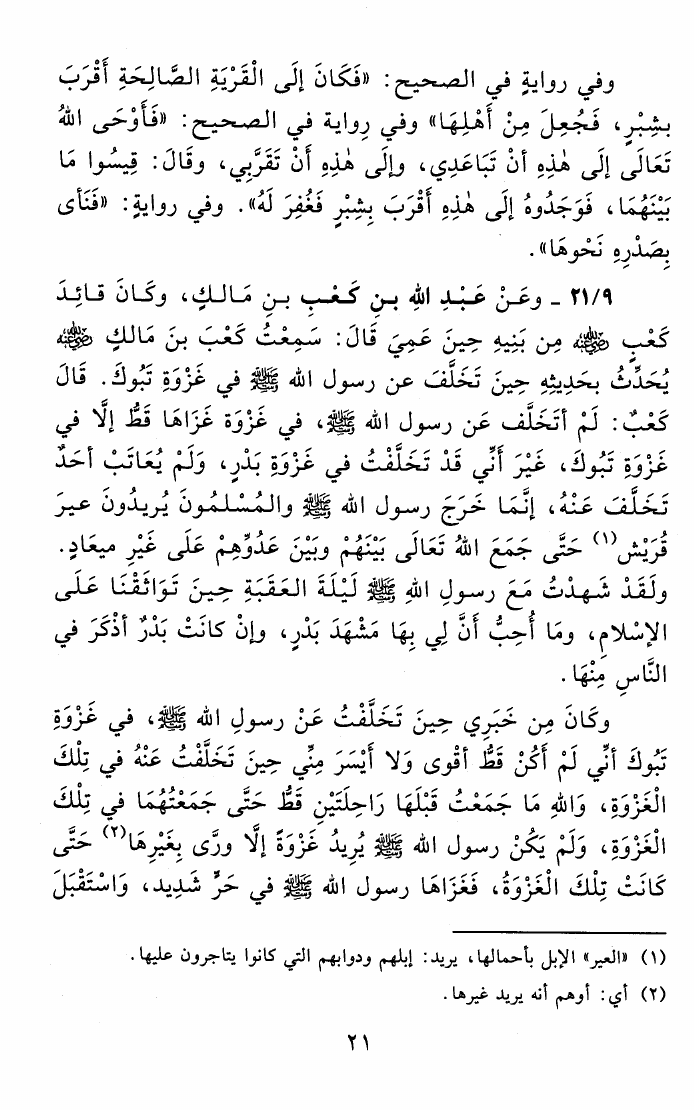 وفي روايةٍ في الصحيح: «فَكَانَ إلَى الْقَرْيَةِ الصَّالِحَةِ أَقْرَبَ
بِشِبْرٍ، فَجُعِلَ مِنْ أَهْلِهَا» وفي رِواية في الصحيح: «فَأَوْحَى اللهُ
تَعَالَى إلَى هٰذِهِ أنْ تَبَاعَدِي، وإلَى هٰذِهِ أَنْ تَقَرَّبِي، وقَالَ: قِيسُوا مَا
بَيْنَهُمَا، فَوَجَدُوهُ إلَى هٰذِهِ أَقْرَبَ بِشِبْرٍ فَغُفِرَ لَهُ». وفي روايةٍ: «فَنَأى
بِصَدْرِهِ نَحْوهَا».
٢١/٩ ـ وعَنْ عَبْدِ اللهِ بنِ كَعْبِ بنِ مَالكٍ، وكَانَ قائِدَ
كَعْبٍ ﵁ مِن بَنِيهِ حِينَ عَمِيَ قَالَ: سَمِعْتُ كَعْبَ بنَ مَالكٍ ﵁
يُحَدِّثُ بحَدِيثِهِ حِينَ تَخَلَّفَ عن رسول الله ﷺ في غَزْوَةِ تَبُوكَ. قَالَ
كَعْبٌ: لَمْ أتَخَلَّف عَن رسولِ الله ﷺ، في غَزْوَة غَزَاهَا قَطُّ إلَّا في
غَزْوَةِ تَبُوكَ، غَيْرَ أَنِّي قَدْ تَخَلَّفْتُ في غَزْوَةِ بَدْرٍ، ولَمْ يُعَاتَبْ أحَدٌ
تَخَلَّفَ عَنْهُ، إنَّمَا خَرَجَ رسول الله ﷺ والمُسْلمُونَ يُريدُونَ عيرَ
قُرَيْش(١) حَتَّى جَمَعَ اللهُ تَعَالَى بَيْنَهُمْ وبَيْنَ عَدُوِّهِمْ عَلَى غَيْرِ ميعَادٍ.
ولَقَدْ شَهِدْتُ مَعَ رسولِ اللهِ ﷺ لَيْلَةَ العَقَبَةِ حِينَ تَوَاثَقْنَا عَلَى
الإسْلامِ، ومَا أُحِبُّ أَنَّ لِي بِهَا مَشْهَدَ بَدْرٍ، وإنْ كانَتْ بَدْرٌ أذْكَرَ في
النَّاسِ مِنْهَا.
وكَانَ مِن خَبَرِي حِينَ تَخَلَّفْتُ عَنْ رسولِ الله ﷺ، في غَزْوَةِ
تَبُوكَ أنِّي لَمْ أَكُنْ قَطُّ أقْوى وَلا أَيْسَرَ مِنِّي حِينَ تَخَلَّفْتُ عَنْهُ في تِلْكَ
الْغَزْوَةِ، وَاللهِ مَا جَمَعْتُ قَبْلَهَا رَاحِلَتَيْنِ قَطُّ حَتَّى جَمَعْتُهُمَا في تِلْكَ
الْغَزْوَةِ، وَلَمْ يَكُنْ رسول الله ﷺ يُرِيدُ غَزْوَةً إلَّا ورَّى بِغَيْرِهَا(٢) حَتَّى
كَانَتْ تِلْكَ الْغَزْوَةُ، فَغَزَاهَا رسول الله ﷺ في حَرٍّ شَدِيد، وَاسْتَقْبَلَ
(١) «العير» الإبل بأحمالها، يريد: إبلهم ودوابهم التي كانوا يتاجرون عليها.
(٢) أي: أوهم أنه يريد غيرها.
٢١